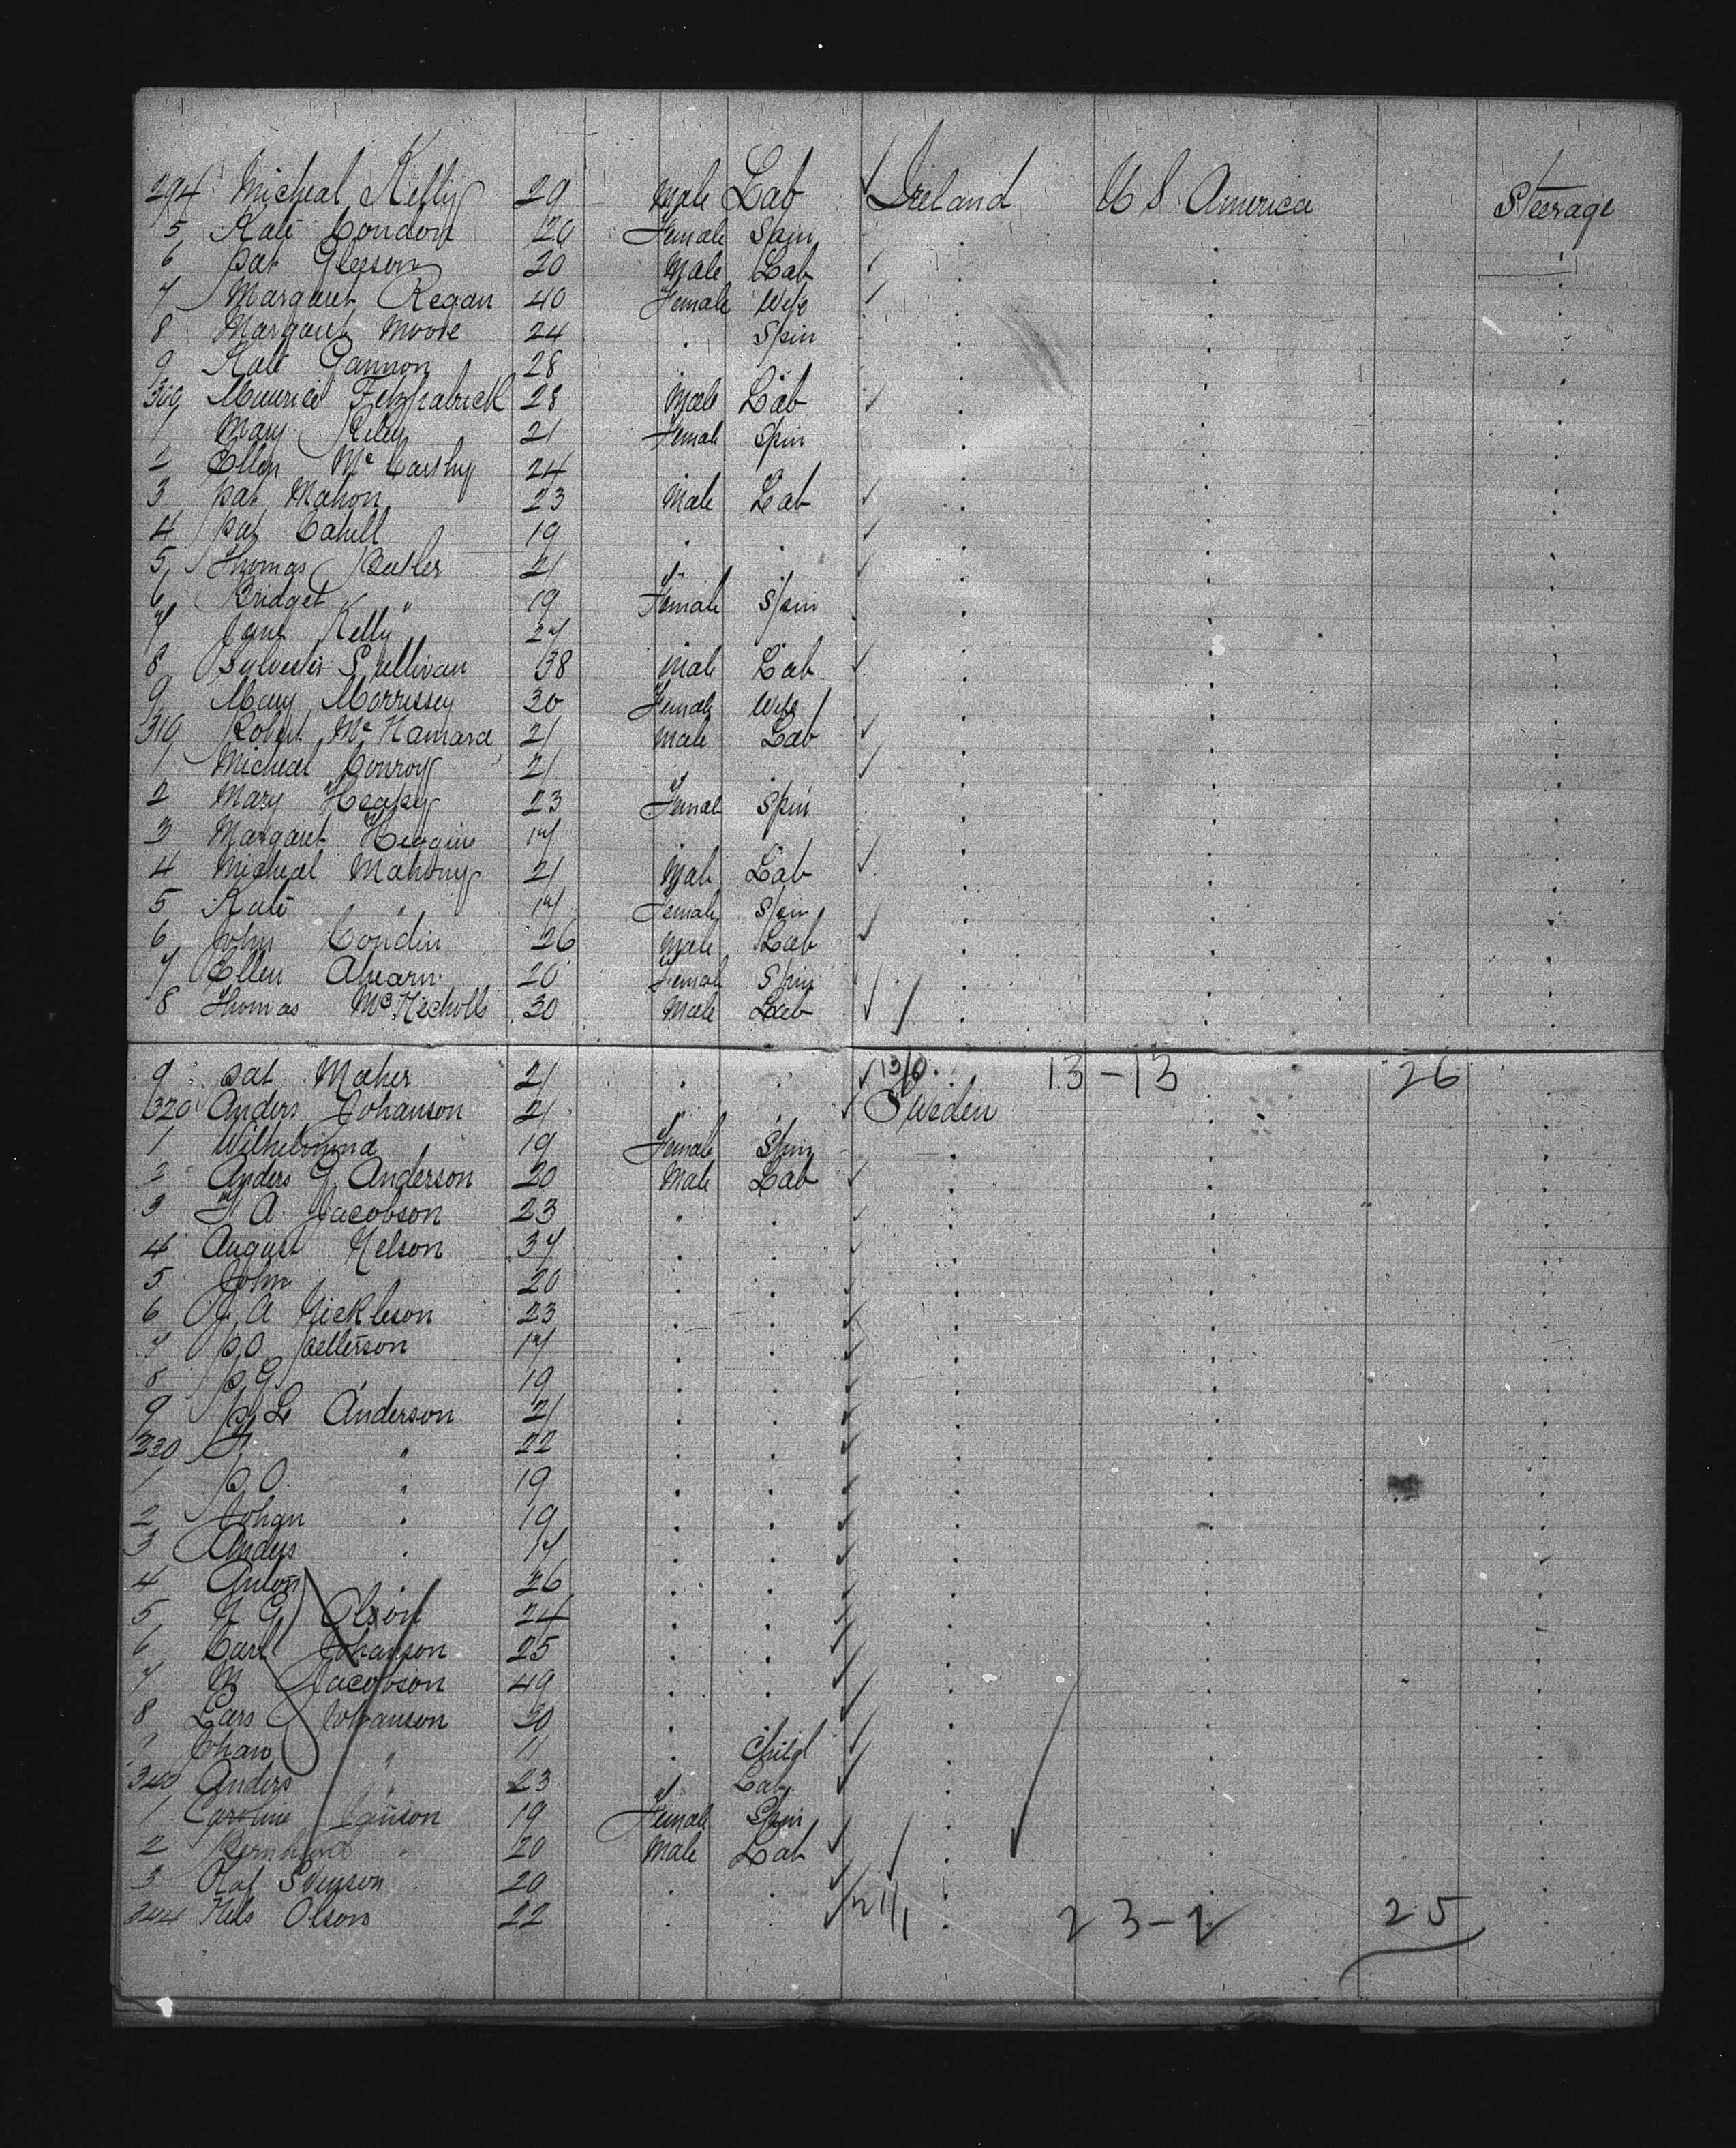 294 Micheal Kelly 29 Male Lab Ireland U S America Steerage
5 Kate Condon 20 Female Spin
6 Pat Gleeson 20 Male Lab
7 Margaret Regan 40 Female Wife
8 Margaret Moore 24 . Spin
9 Kate Gannon 28
300 Maurice Fitzpatrick 28 Male Lab
1 Mary Riley 21 Female Spin
2 Ellen McCarthy 24
3 Pat Mahon 23 Male Lab
4 Pat Cahill 19 . .
5 Thomas Butler 21
6 Bridget " 19 Female Spin
7 Jane Kelly 27
8 Sylvester Sullivan 38 Male Lab
9 Mary Morrissey 30 Female Wife
310 Robert McNamara 21 Male Lab
1 Micheal Conroy 21
2 Mary 23 Female Spin
3 Margaret Higgins 17
4 Micheal Mahony 21 Male Lab
5 Kate " 17 Female Spin
6 John Condin 26 Male Lab
7 Ellen Ahearn 20 Female Spin
8 Thomas McNicholls 30 Male Lab
9 Pat Maher 21 . . 13/0 13-13 26
320 Anders Johanson 21 . . Sweden
1 Wilhelmina 19 Female Spin
2 Anders G Anderson 20 Male Lab
3 A Jacobson 23 . .
4 August Nelson 37 . .
5 John 20 . .
6 A Nickleson 23 . .
7 P O Petterson 17 . .
8 P G 19 . .
9 P L Anderson 21 . .
230 " 22 . .
1 P O " 19 . .
2 Johan " 19 . .
3 Anders " 17 . .
4 Anton 26 . .
5 G Olson 24 . .
6 Carl Johanson 25 . .
7 M Jacobson 49 . .
8 Lars Johanson 30 .
9 Johan " 11 . Child
340 Anders " 23 Lab
1 Caroline 19 Female Spin
2 Bernhard " 20 Male Lab
3 Svenson 20 . .
344 Nels Olson 22 . . 21/1 23-2 25